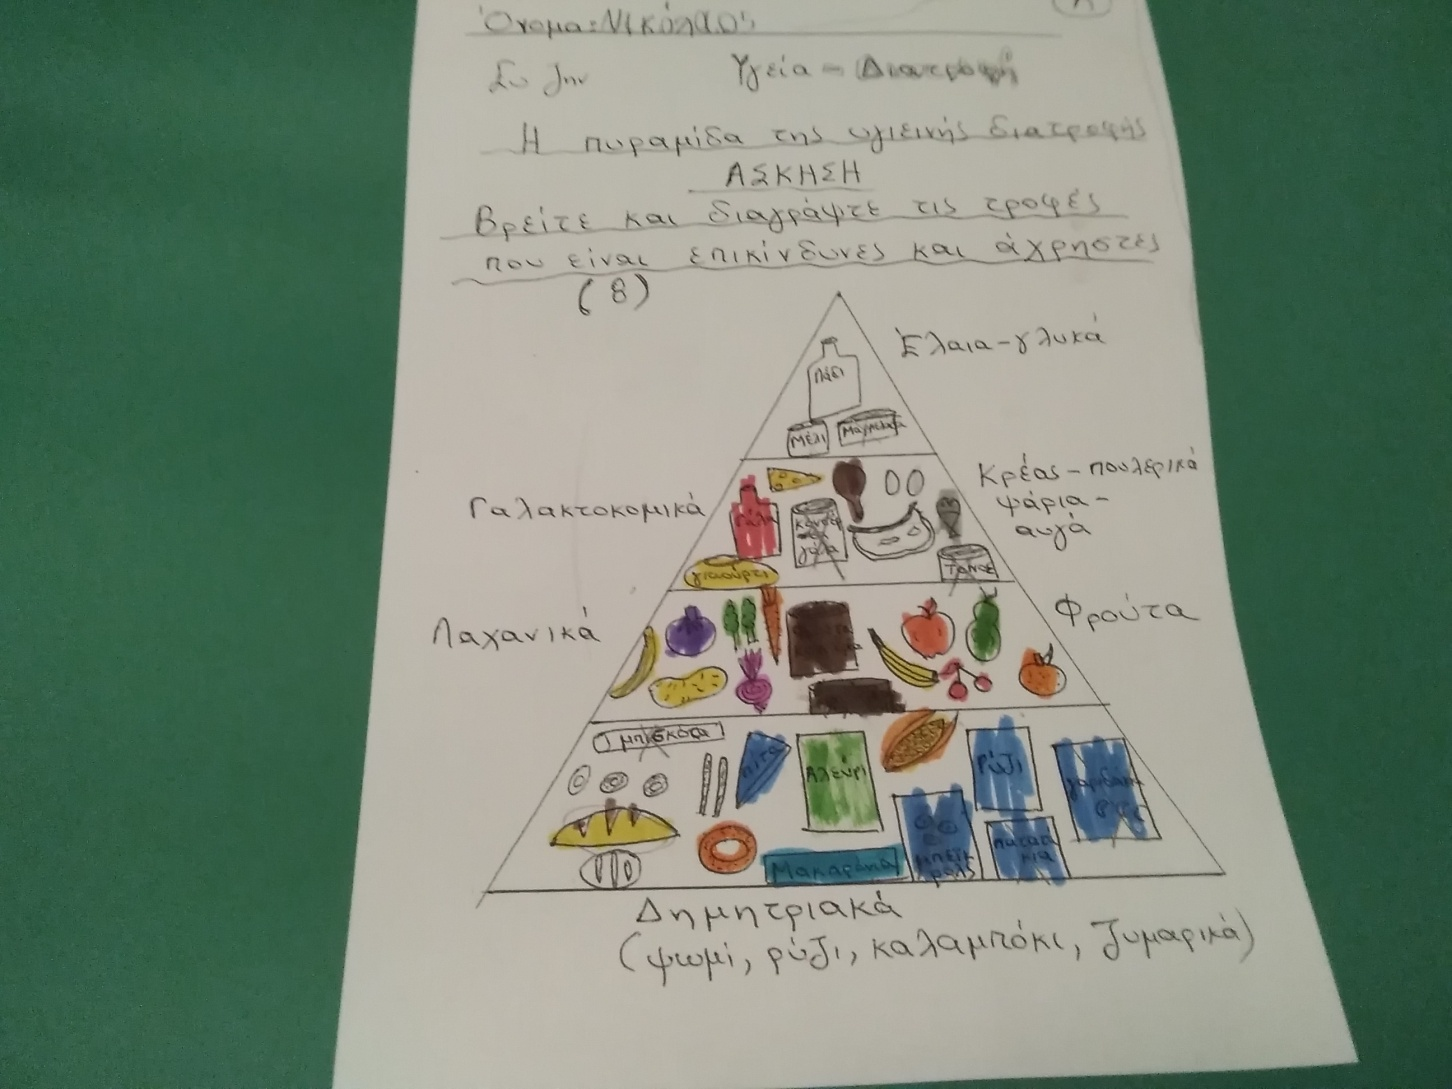 Όνομα: Νικόλαος
Ευ ζην Υγεία - Διατροφή
Η πυραμίδα της υγιεινής διατροφής
ΑΣΚΗΣΗ
Βρείτε και διαγράψτε τις τροφές
που είναι επικίνδυνες και άχρηστες
(8)
Έλαια-γλυκά
Λάδι
Μέλι
Γαλακτοκομικά
Κρέας - πουλερικά
ψάρια -
αυγά
γάλα
γιαούρτι
Τόνος
Λαχανικά
Φρούτα
μπισκότα
πίτα
Αλεύρι
ρύζι
Μακαρόνια
πατατά
κια
Δημητριακά
(ψωμί, ρύζι, καλαμπόκι, ζυμαρικά)